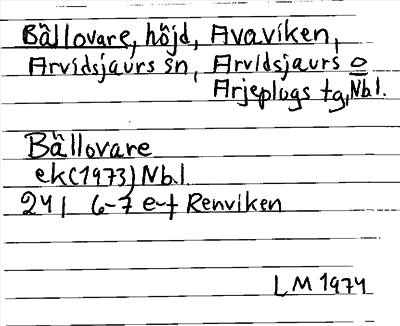 Bällovare, höjd, Avaviken,
Arvidsjaurs sn, Arvidsjaurs o
Arjeplogs tg, Nb.l.
Bällovare
ek (1973) Nb.l
24 I 6-7 e-f Renviken
LM 1974